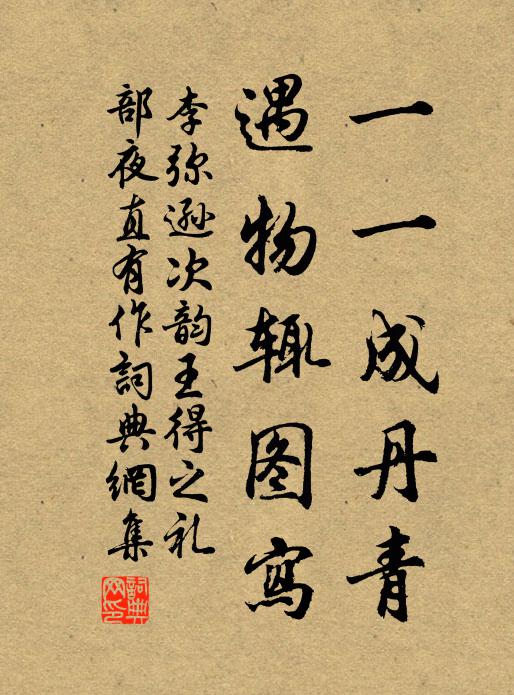 一一成丹青
遇物辄图寫
李弥逊次韵王得之礼
部夜直有作詞典網集
詞典
网印